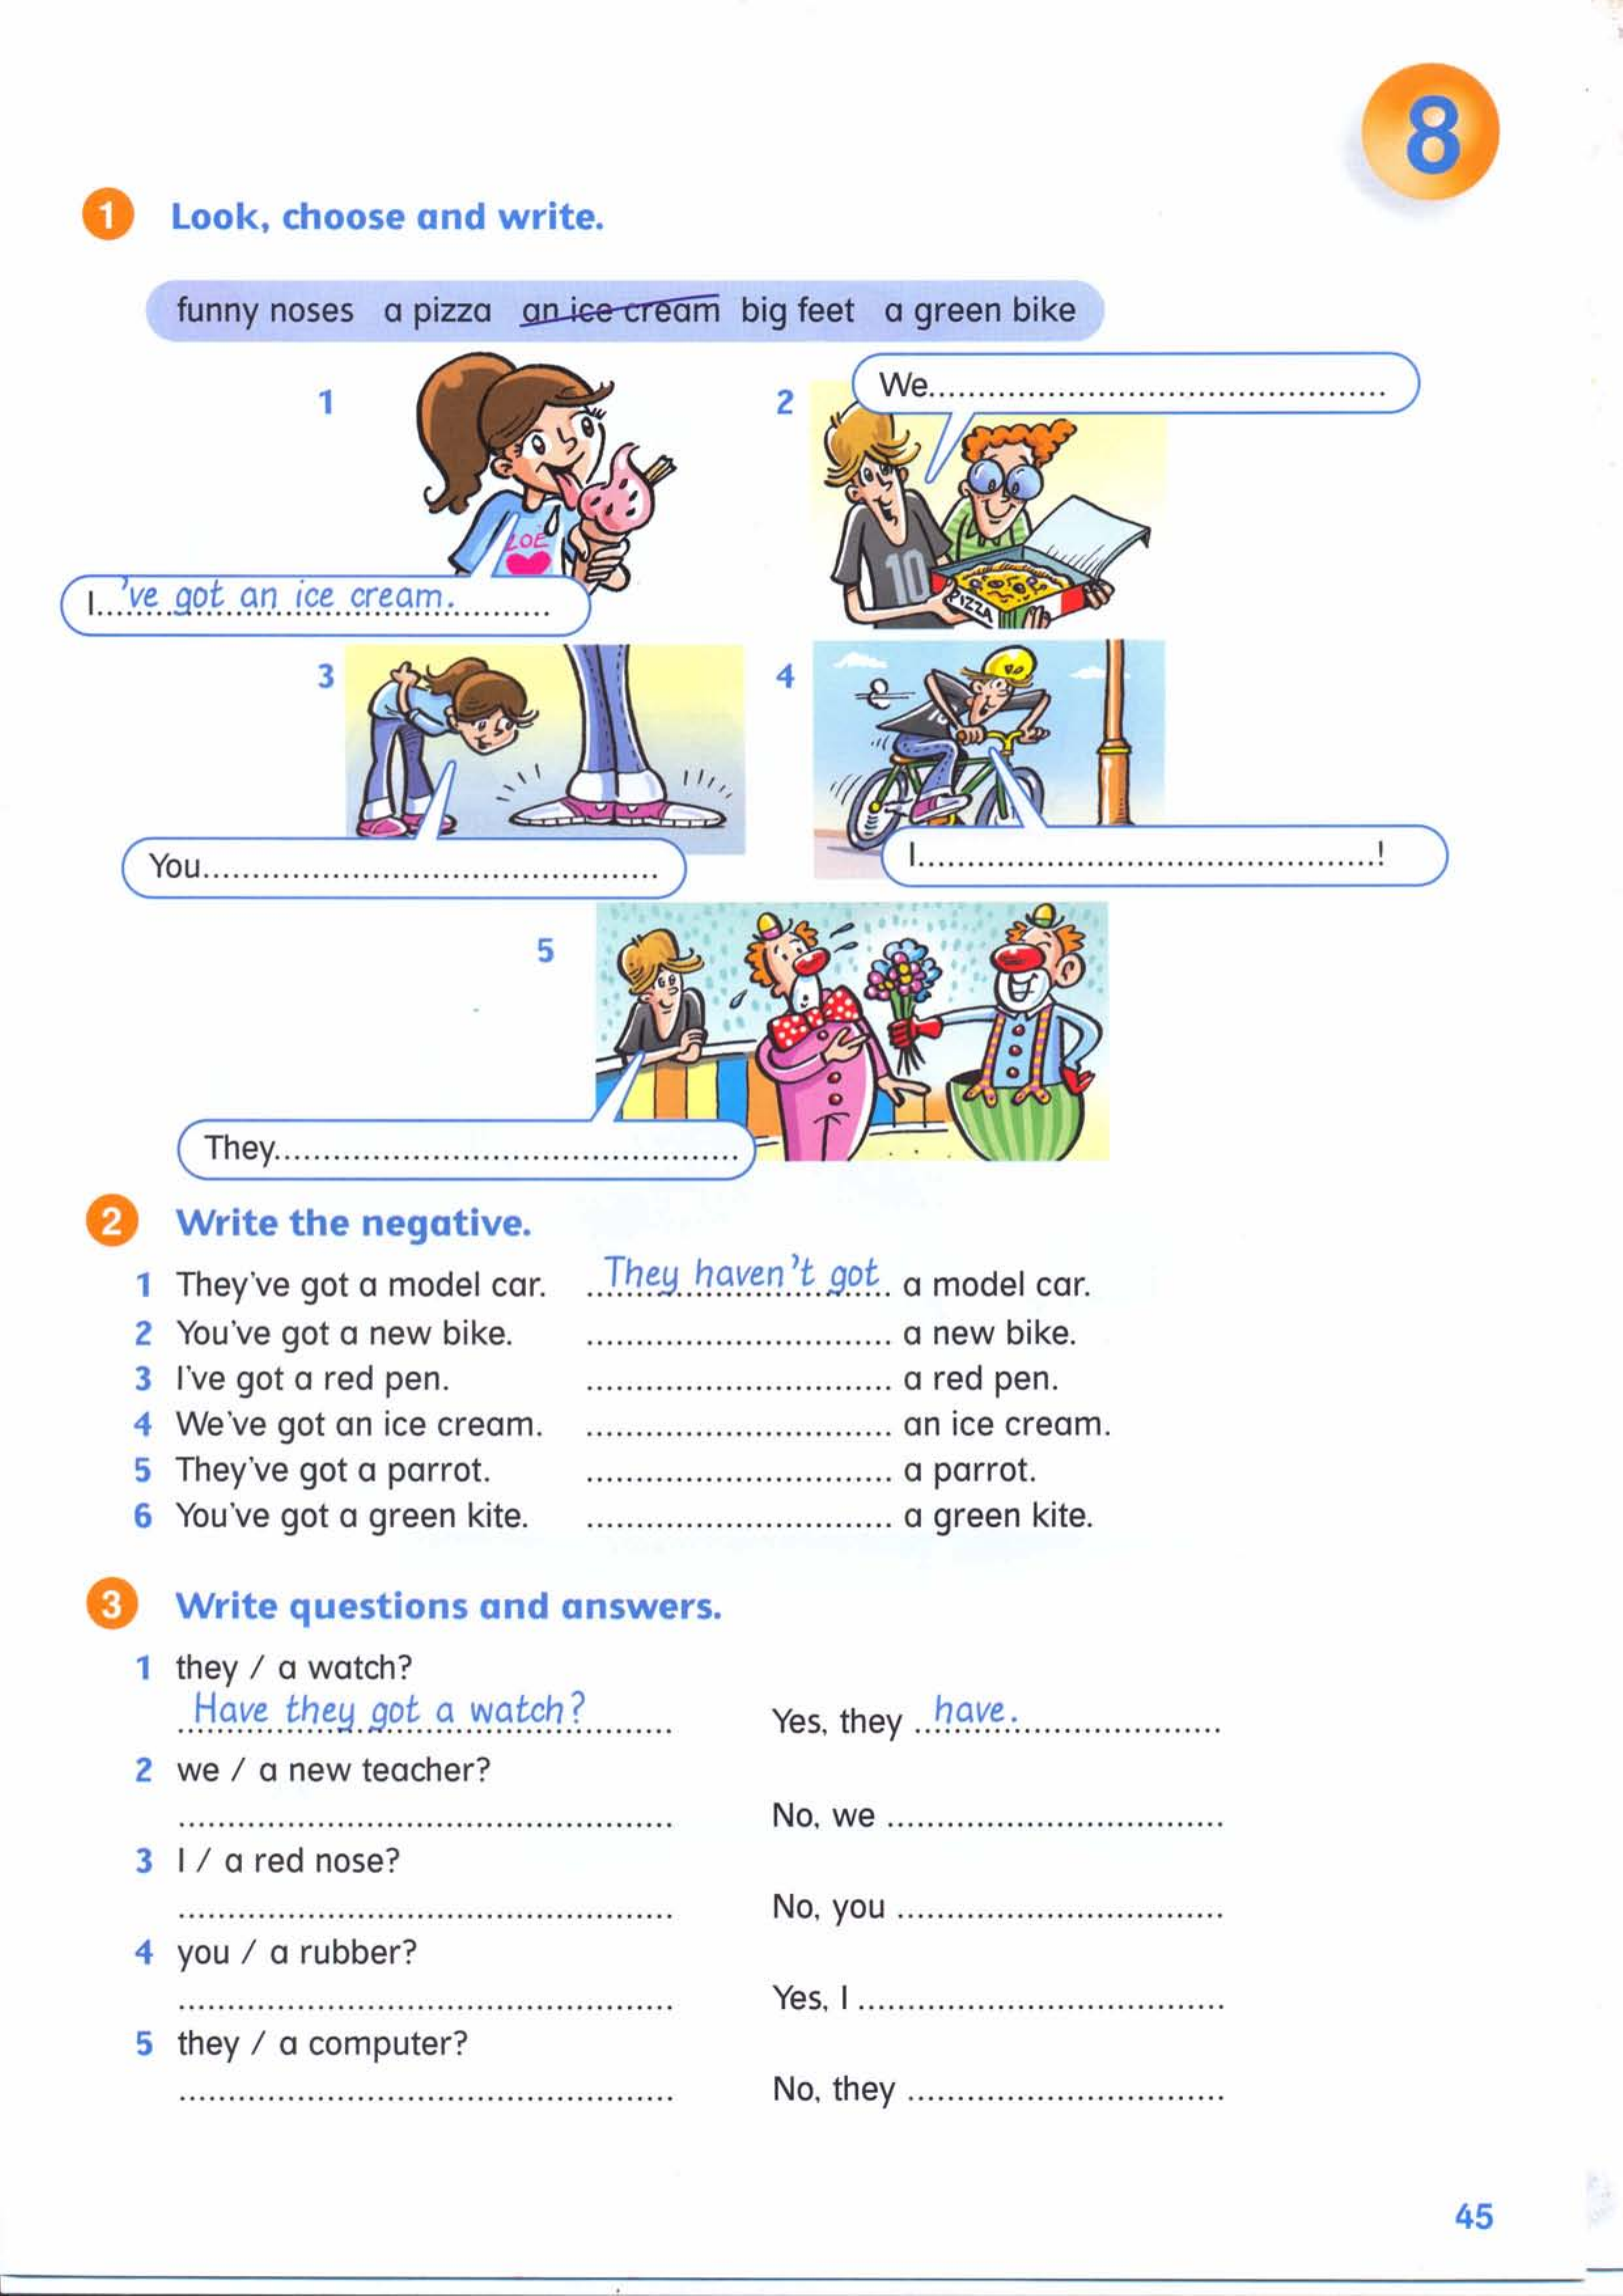 8
1 Look, choose and write.
funny noses a pizza an ice cream big feet a green bike
1
2
We...............................................
ZOE
10
PIZZA
I...'ve got an ice cream...........
3
4
You...............................................
I...............................................!
5
They...............................................
2 Write the negative.
1 They've got a model car. They haven't got a model car.
2 You've got a new bike. ............................... a new bike.
3 I've got a red pen. ............................... a red pen.
4 We've got an ice cream. ............................... an ice cream.
5 They've got a parrot. ............................... a parrot.
6 You've got a green kite. ............................... a green kite.
3 Write questions and answers.
1 they / a watch?
Have they got a watch? Yes, they have.
2 we / a new teacher?
.................................................. No, we ..................................
3 I / a red nose?
.................................................. No, you .................................
4 you / a rubber?
.................................................. Yes, I .....................................
5 they / a computer?
.................................................. No, they ................................
45